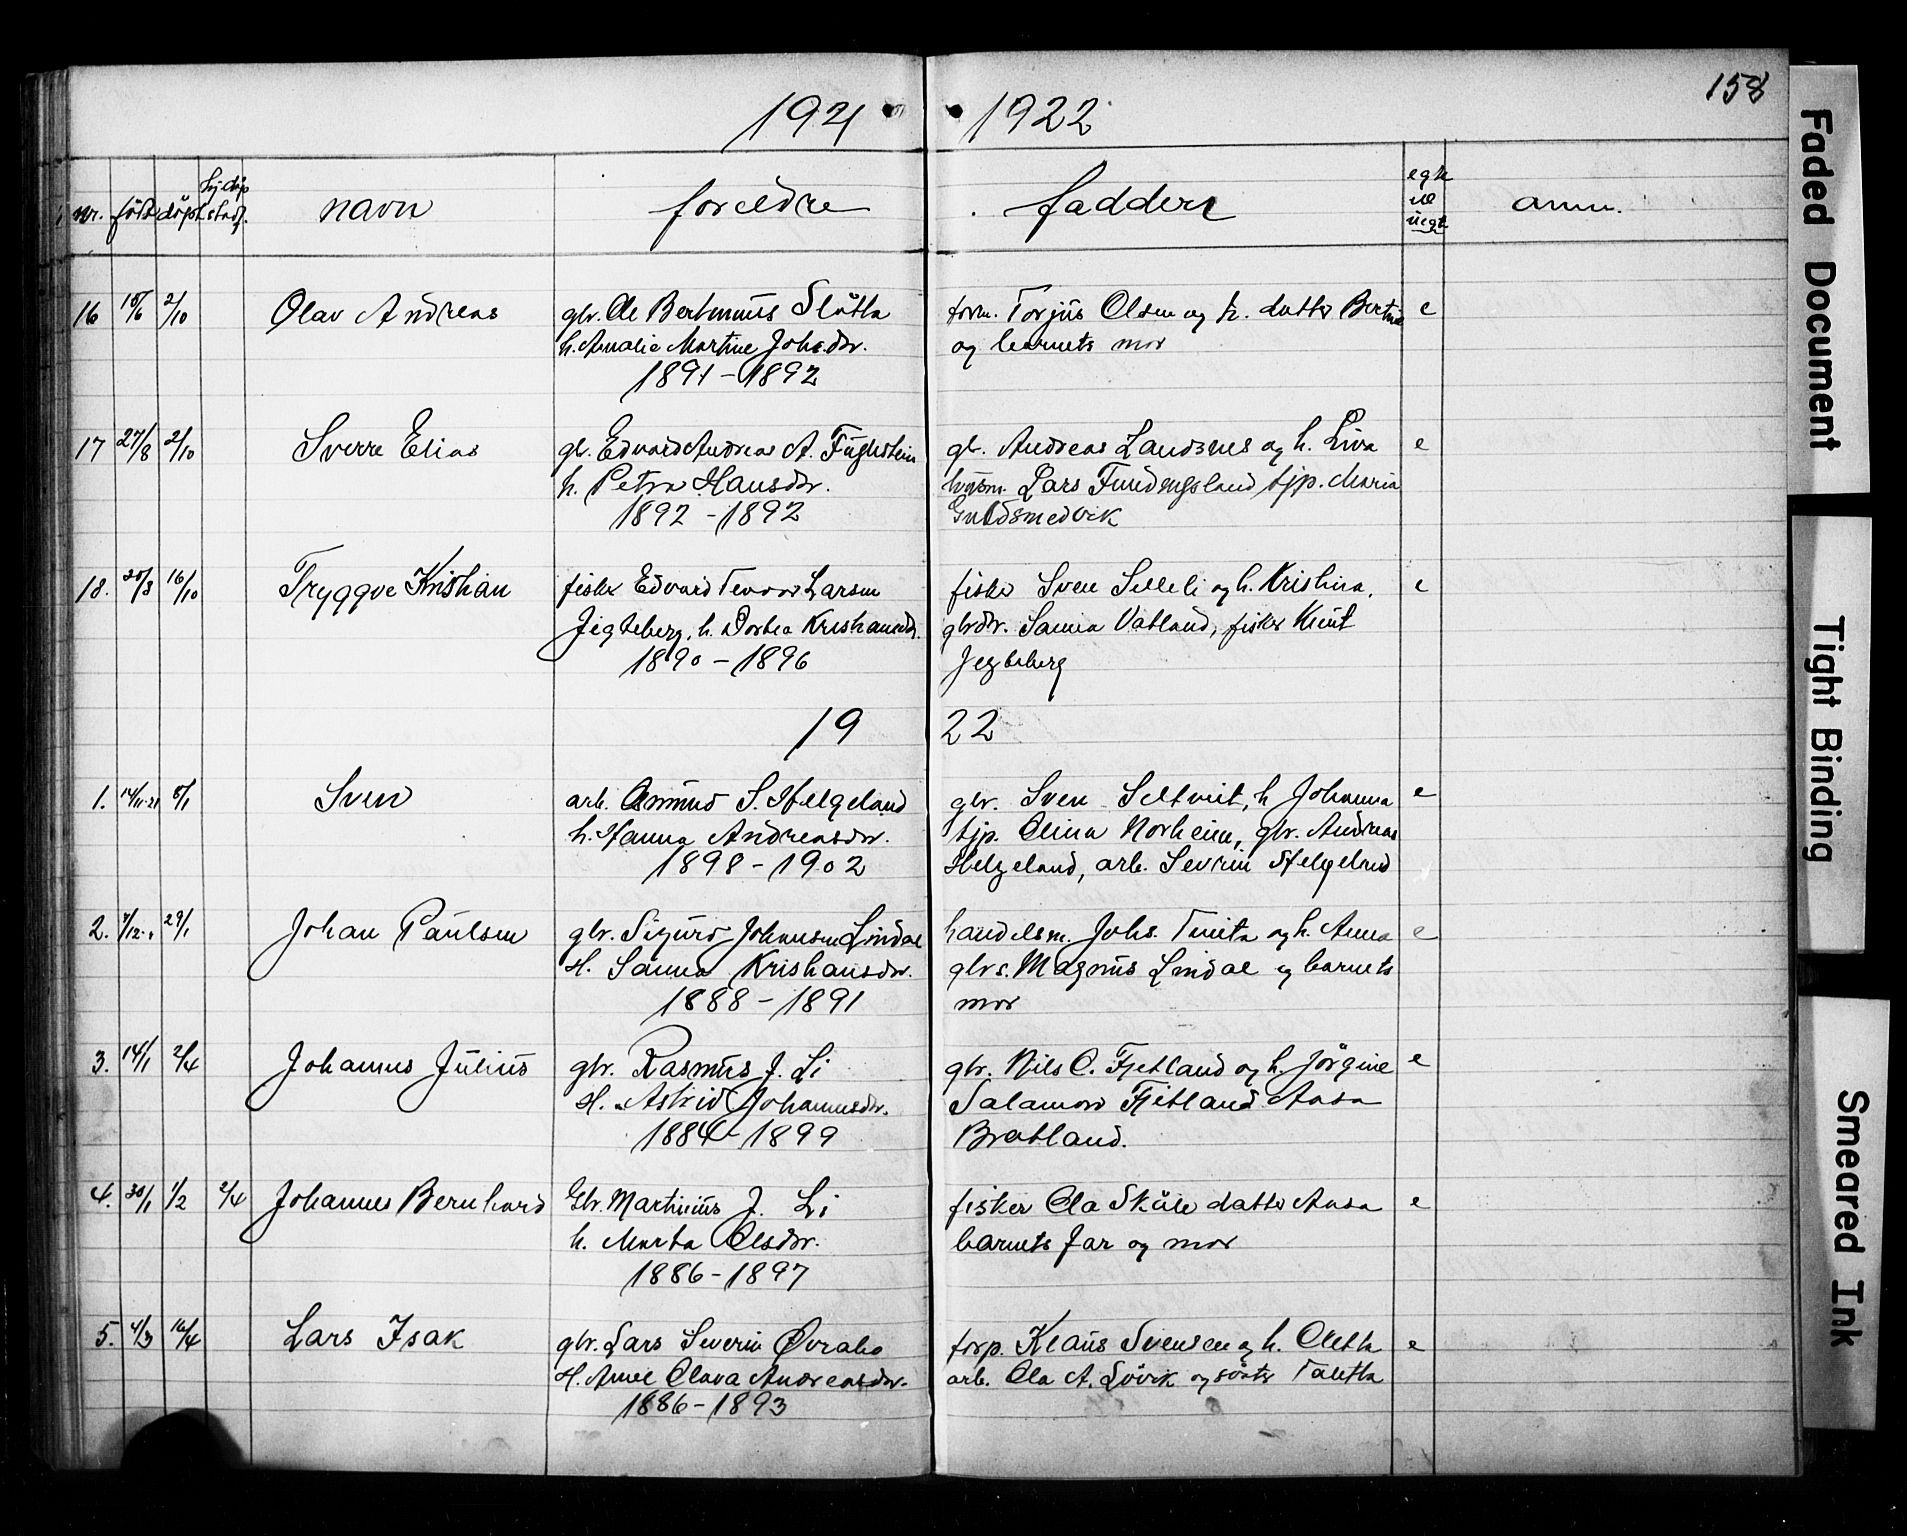 158
1921 1922
nr. født døpt hj.døp stadf. navn foreldre faddere egte el. uegt anm.
16 18/6 2/10 Olav Andreas gbr. Ole Bertinius Slåtta form. Torjus Olsen og h. datter Bertine e
h. Amalie Martine Johs.dtr. og barnets mor
1891 - 1892
17 27/8 2/10 Sverre Elias gb. Edvard Andreas A. Fuglestein gb. Andreas Landsnes og h. Liva e
h. Petra Hansdtr. husm. Lars Fundingsland tjp. Maria
1892 - 1892 Guldsmedvik
18. 20/8 16/10 Tryggve Kristian fisker Edvard Larsen fisker Sven Selleli og h. Kristina, e
Jegteberg, h. Dortea Kristiansdtr. gbrdtr. Sanna Vatland, fisker Knut
1890 - 1896 Jegteberg
19 22
1. 14/11-21 8/1 Sven arb. Asmund S. Helgeland gbr. Sven Seltveit, h Johanna e
h. Hanna Andreasdtr. tjp. Olina Norheim, gbr. Andreas
1898 - 1902 Helgeland, arb. Severin Helgeland
2. 7/12-" 29/1 Johan Paulsen gbr. Sigurd Johansen Lindal handelsm. Johs. Tveita og h. Anna e
H. Sanna Kristiansdtr. gbrs. Magnus Lindal og barnets
1888 - 1891 mor
3. 14/1 2/4 Johannes Julius gbr. Rasmus J. Li gbr. Nils C. Fjetland og h. Jørgine e
H. Astrid Johannesdtr. Salamon Fjetland Aasa
1884 - 1899 Bratland.
4. 30/1 1/2 2/4 Johannes Bernhard Gbr. Martinius J. Li fisker Ola Skåle datter Aasa e
h. Marta Olsdtr. barnets far og mor
1886 - 1897
5. 4/3 16/4 Lars Isak gbr. Lars Severin Øvrabø forp. Klaus Svensen og h. Oletta e
H. Anne Olava Andreasdtr. arb. Ola A. Løvik og søster Taletta
1886 - 1893
Faded Document
Tight Binding
Smeared Ink